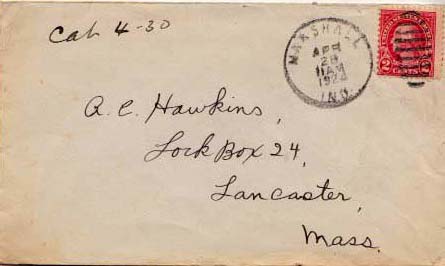 Cat 4-30
MARSHALL
APR
28
11 AM
IND.
2 2
A. C. Hawkins,
Lock Box 24,
Lancaster,
Mass.